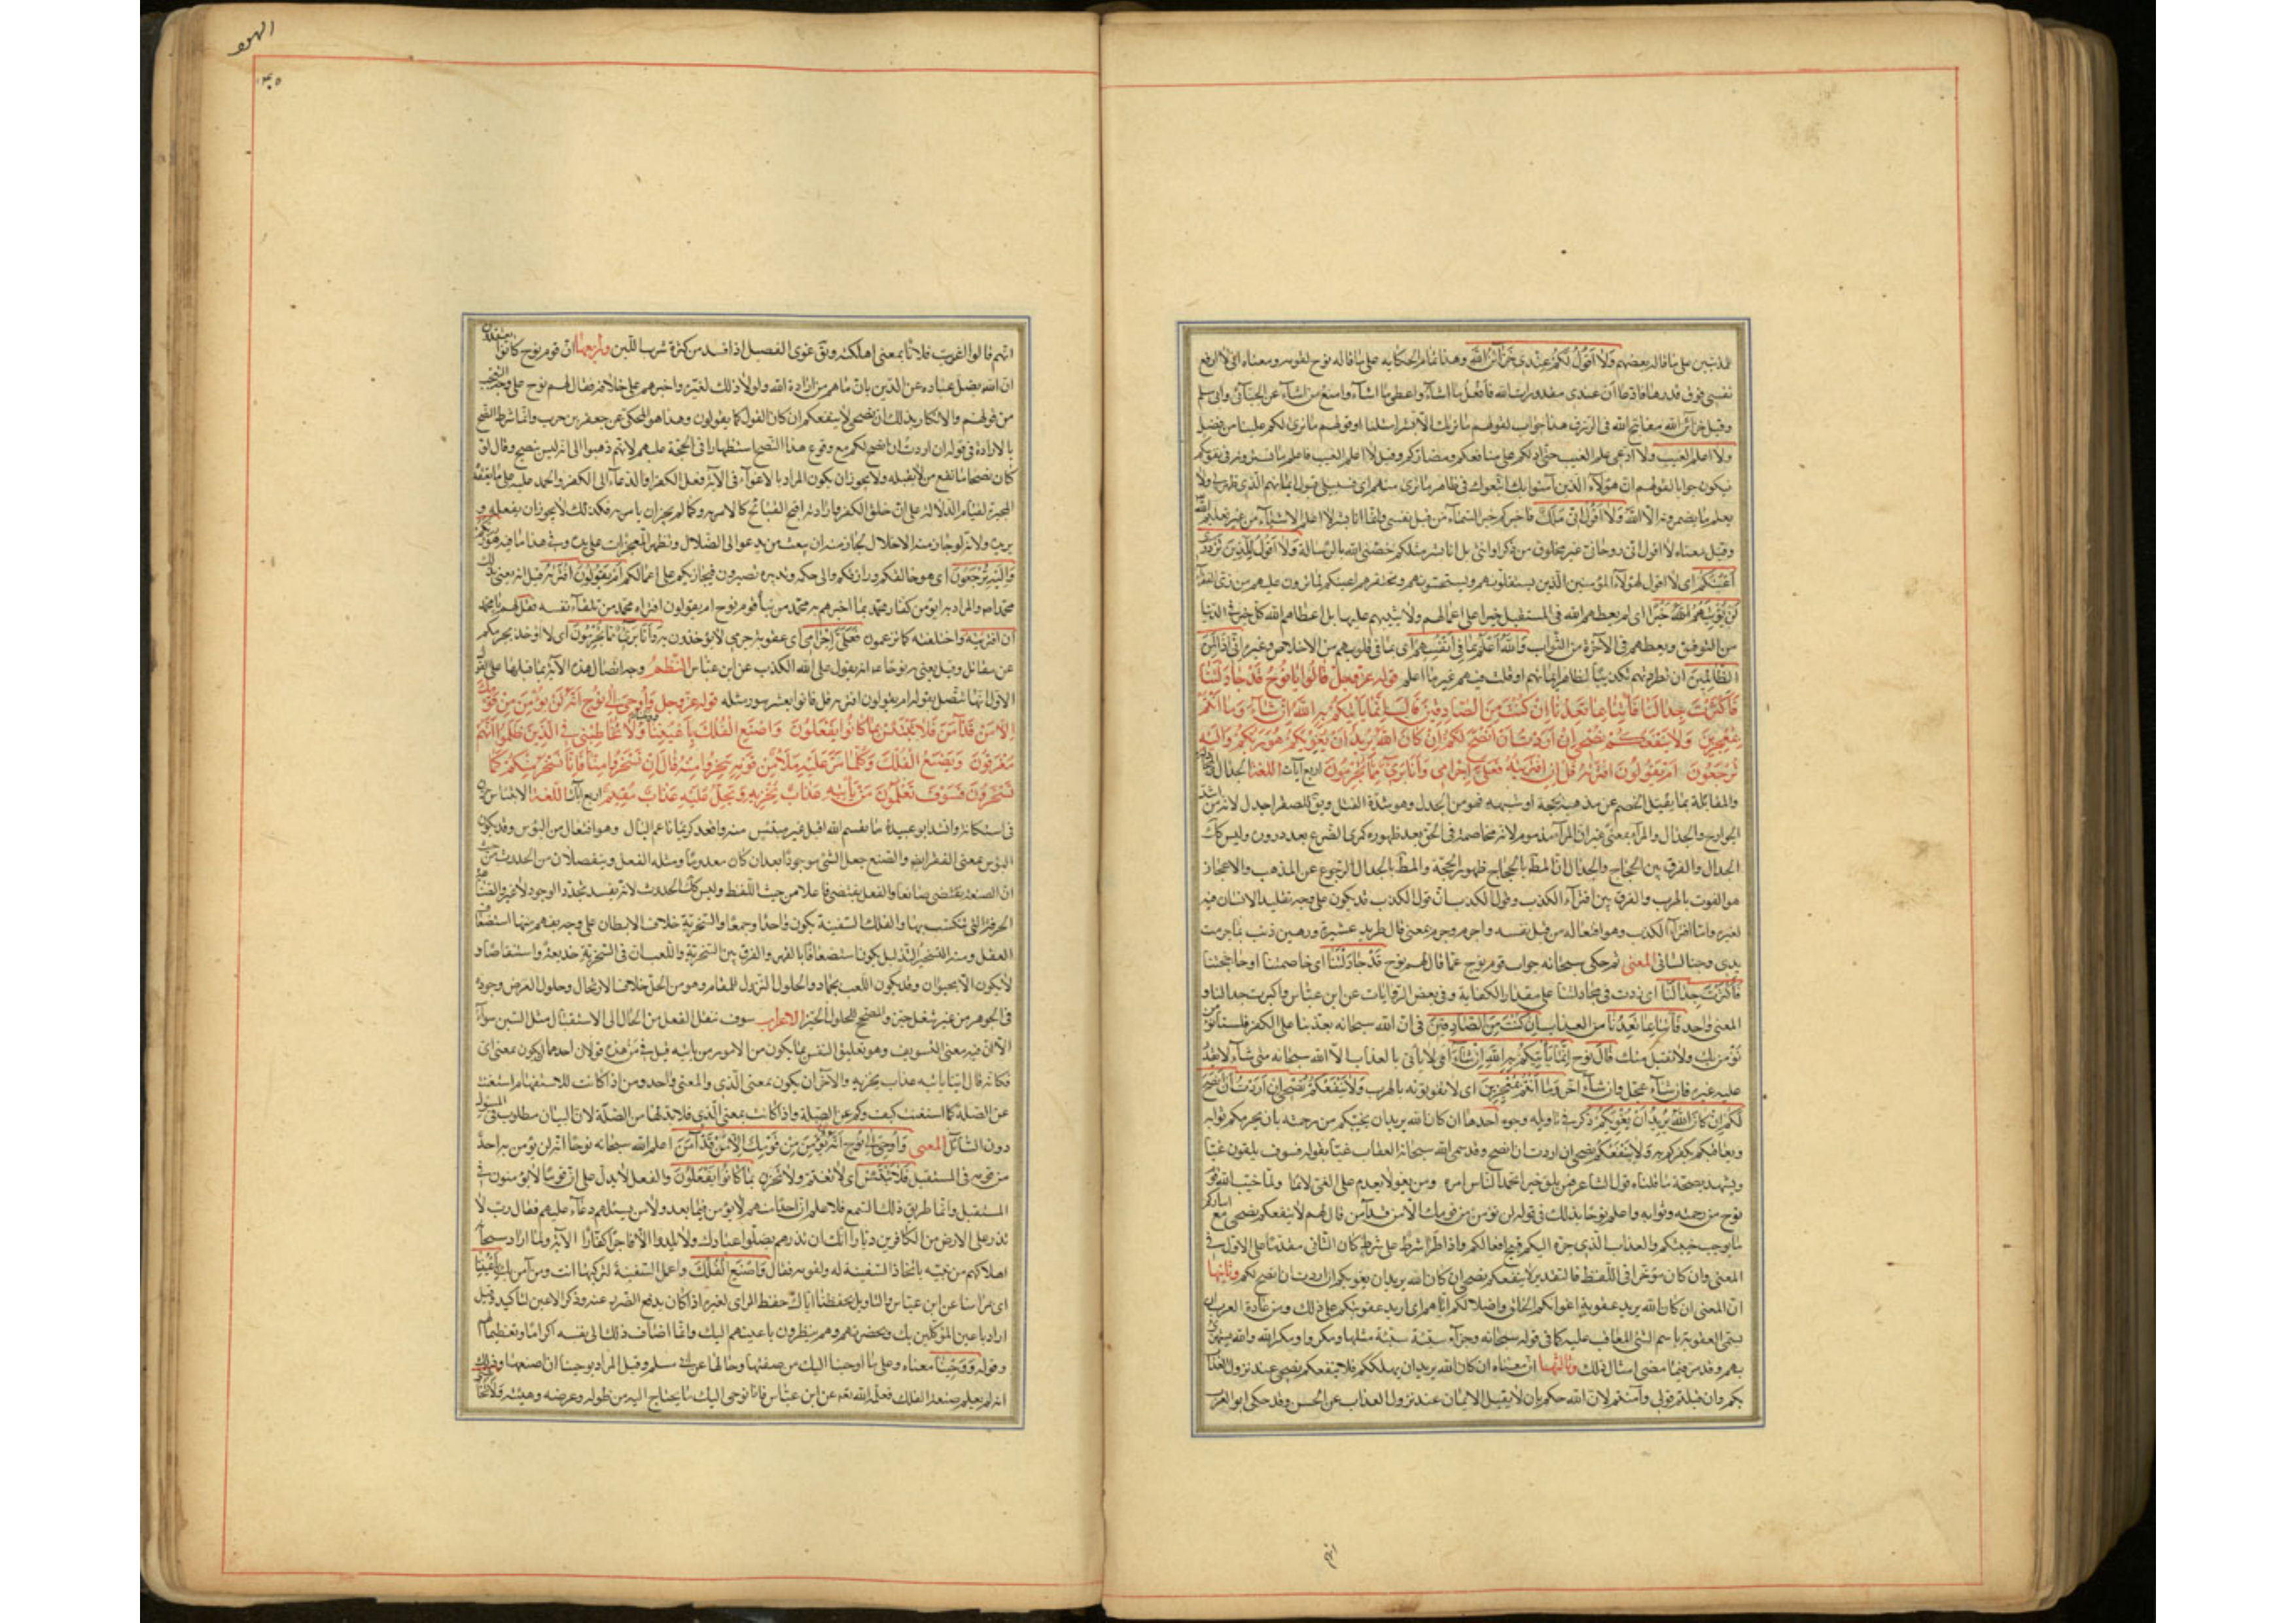 للذنبين على ما قاله بعضهم ولا أقول لكم عندي خزائن الله وهذا تمام الحكاية على ما قاله نوح لقومه ومعناه اني لا ارفع
نفسي فوق قدرها فادعي أن عندي مقدورات الله فأفعل ما اشاء واعطي ما اشاء وامنع من اشاء عن الجبائي وابي مسلم
وقيل خزائن الله مفاتيح الله في الرزق هذا جواب لقولهم ما نريك الا بشرا مثلنا او قولهم ما نرى لكم علينا من فضل
ولا اعلم الغيب ولا ادعي علم الغيب حتى ادلكم على منافعكم ومضاركم وقيل لا اعلم الغيب فاعلم ما
فيكون جوابا لقولهم ان هؤلاء الذين آمنوا بك اتبعوك في ظاهر ما نرى منهم اي فسبيل قبول ايمانهم الذي ظهر لي ولا
يعلم ما يضمرونه الا الله ولا أقول اني ملك فاخبركم خبر السماء من قبل نفسي وانما انا بشر لا اعلم الاشياء من غير تعليم الله
وقيل معناه لا اقول اني روحاني غير مخلوق من ذكر او انثى بل انا بشر مثلكم خصني الله بالرسالة ولا أقول للذين تزدري
أعينكم اي لا اقول لهؤلاء المؤمنين الذين يستقلونهم ويستخفونهم ويحتقرهم اعينكم لما ترون عليهم من زي الفقراء
لن يؤتيهم الله خيرا اي لم يعطهم الله في المستقبل خيرا على اعمالهم ولا يثيبهم عليها بل اعطاهم الله كل خير في الدنيا
من التوفيق ويعطيهم في الآخرة من الثواب والله أعلم بما في أنفسهم اي بما في قلوبهم من الاخلاص وغيره اني اذا لمن
الظالمين ان طردتهم تكذيبا لظاهر ايمانهم او قلت فيهم غير ما اعلم قوله عز وجل قالوا يا نوح قد جادلتنا
فأكثرت جدالنا فأتنا بما تعدنا إن كنت من الصادقين قال إنما يأتيكم به الله إن شاء وما أنتم
بمعجزين ولا ينفعكم نصحي إن أردت أن أنصح لكم إن كان الله يريد أن يغويكم هو ربكم وإليه
ترجعون أم يقولون افتراه قل إن افتريته فعلي إجرامي وأنا بريء مما تجرمون اربع آيات اللغة الجدال والمجادلة
والمقابلة بما يفتل الخصم عن مذهبه بحجة او شبهة فهو من الجدل وهو شدة الفتل ويق للصقر اجدل لانه من اشد
الجوارح والجدال والمراء بمعنى غير ان المراء مذموم لانه مخاصمة في الحق بعد ظهوره كمري الضرع بعد دروره وليس كك
الجدال والفرق بين الحجاج والجدال ان المط بالحجاج ظهور الحجة والمط بالجدال الرجوع عن المذهب والاعجاز
هو الفوت بالهرب والفرق بين افتراء الكذب وقول الكذب ان قول الكذب قد يكون على وجه تقليد الانسان فيه
لغيره واما افتراء الكذب وهو افتعاله من قبل نفسه واجرم وجرم بمعنى قال طريد عشيرة ورهين ذنب بما جرمت
يدي وجنى لساني المعنى ثم حكى سبحانه جواب قوم نوح عما قال لهم نوح قد جادلتنا اي خاصمتنا او حاججتنا
فأكثرت جدالنا اي زدت في مجادلتنا على مقدار الكفاية وفي بعض الروايات عن ابن عباس فاكثرت جدلنا و
المعنى واحد فأتنا بما تعدنا من العذاب إن كنت من الصادقين في ان الله سبحانه يعذبنا على الكفر فلسنا
نؤمن بك ولا نقبل منك قال نوح إنما يأتيكم به الله إن شاء اي لا ياتي بالعذاب الا الله سبحانه متى شاء لا يقدر
عليه غيره فان شاء عجل وان شاء اخر وما أنتم بمعجزين اي لا تفوتونه بالهرب ولا ينفعكم نصحي إن أردت أن أنصح
لكم إن كان الله يريد أن يغويكم ذكر في تاويله وجوه احدها ان كان الله يريد ان يخيبكم من رحمته بان يحرمكم ثوابه
ويعاقبكم بكفركم به ولا ينفعكم نصحي ان اردت ان انصح وقد سمى الله سبحانه العقاب غيا بقوله فسوف يلقون غيا
ويشهد بصحة ما قلناه قول الشاعر فمن يلق خيرا يحمد الناس امره ومن يغو لا يعدم على الغي لائما ولما خيب الله قوم
نوح من رحمته وثوابه واعلم نوحا بذلك في قوله لن يؤمن من قومك الا من قد آمن قال لهم لا ينفعكم نصحي مع اصراركم
ما يوجب خيبتكم والعذاب الذي جره اليكم قبيح افعالكم واذا طرا شرط على شرط كان الثاني مقدما على الاول في
المعنى وان كان مؤخرا في اللفظ فالتقدير لا ينفعكم نصحي ان كان الله يريد ان يغويكم ان اردت ان انصح لكم وثانيها
ان المعنى ان كان الله يريد عقوبة اغوائكم الخلق واضلالكم اياهم اي اريد عقوبتكم على ذلك ومن عادة العرب ان
يسمى العقوبة باسم الشئ المعاقب عليه كما في قوله سبحانه وجزاء سيئة سيئة مثلها ومكروا ومكر الله والله يستهزئ
بهم وقد مر فيما مضى امثال ذلك وثالثها ان معناه ان كان الله يريد ان يهلككم فلا ينفعكم نصحي عند نزول العذاب
بكم وان قبلتم قولي وآمنتم لان الله حكم بان لا يقبل الايمان عند نزول العذاب عن الحسن وقد حكى ابو العرب
انهم
الهود
انهم قالوا اغويت فلانا بمعنى اهلكته ويق غوى الفصيل اذا فسد من كثرة شرب اللبن ورابعها ان قوم نوح كانوا يعتقدون
ان الله يضل عباده عن الدين بان ما هم من ارادة الله ولولا ذلك لغيره واجبرهم على خلافه فقال لهم نوح على وجه التعجب
من قولهم والانكار بذلك ان نصحي لا ينفعكم ان كان القول كما يقولون وهذا هو المحكي عن جعفر بن حرب وانما شرط النصح
بالارادة في قوله ان اردت ان انصح لكم مع وقوع هذا النصح استظهارا في الحجة عليهم لانهم ذهبوا الى انه ليس بنصح وقال لو
كان نصحا ما نفع من لا يقبله ولا يجوز ان يكون المراد بالاغواء في الآية فعل الكفر او الدعاء الى الكفر والحمد عليه على ما يعتقده
المجبرة لقيام الدلالة على ان خلق الكفر وارادته اقبح القبائح كالامر به وكما لم يجز ان يامر به فكذلك لا يجوز ان يفعله و
يريده ولانه لو جاز منه الاخلال لجاز منه ان يبعث من يدعو الى الضلال ويظهر المعجزات على يده وفي هذا ما فيه هو ربكم
وإليه ترجعون اي هو خالقكم ورازقكم والى حكمه وتدبيره تصيرون فيجازيكم على اعمالكم أم يقولون افتراه قيل انه يعني بذلك
محمدا ص والمراد به ايؤمن كفار محمد بما اخبرهم به محمد من نبأ قوم نوح ام يقولون افتراه محمد من تلقاء نفسه فقل لهم يا محمد
ان افتريته واختلقته كما تزعمون فعلي إجرامي اي عقوبة جرمي لا تؤخذون به وأنا بريء مما تجرمون اي لا اؤخذ بجرمكم
عن مقاتل وقيل يعني به نوحا ع انه يقول على الله الكذب عن ابن عباس النظم وجه اتصال هذه الآية بما قبلها على القول
الاول انها تتصل بقوله ام يقولون افتراه قل فاتوا بعشر سور مثله قوله عز وجل وأوحي إلى نوح أنه لن يؤمن من قومك
إلا من قد آمن فلا تبتئس بما كانوا يفعلون واصنع الفلك بأعيننا ووحينا ولا تخاطبني في الذين ظلموا إنهم
مغرقون ويصنع الفلك وكلما مر عليه ملأ من قومه سخروا منه قال إن تسخروا منا فإنا نسخر منكم كما
تسخرون فسوف تعلمون من يأتيه عذاب يخزيه ويحل عليه عذاب مقيم اربع آيات اللغة الابتئاس حزن
في استكانة وانشد ابو عبيدة ما يقسم الله اقبل غير مبتئس منه واقعد كريما ناعم البال وهو افتعال من البؤس وقد يكون
البؤس بمعنى الفقر ايضا والصنع جعل الشئ موجودا بعد ان كان معدوما ومثله الفعل وينفصلان من الحدوث من حيث
ان الصنعة تقتضي صانعا والفعل يقتضي فاعلا من حيث اللفظ وليس كك الحدوث لانه يفيد تجدد الوجود لا غير والصناعة
الحرفة التي تكتسب بها والفلك السفينة يكون واحدا وجمعا والسخرية خلاف الابطان على وجه يفهم منها استضعاف
العقل ومنه التسخير التذليل يكون استضعافا بالقهر والفرق بين السخرية واللعب ان في السخرية خديعة واستنقاصا و
لا يكون الا بحيوان وقد يكون اللعب بجماد والحلول النزول للمقام وهو من الحل خلاف الارتحال وحلول العرض وجوده
في الجوهر من غير شغل حيز والمصحح للحلول الحيز الاعراب سوف تنقل الفعل من الحال الى الاستقبال مثل السين سواء
الا ان فيه معنى التسويف وهو تعليق النفس بما يكون من الامور من ياتيه قيل في من هذه قولان احدهما ان يكون بمعنى اي
فكانه قال اينا ياتيه عذاب يخزيه والآخر ان يكون بمعنى الذي والمعنى واحد ومن اذا كانت للاستفهام استغنت
عن الصلة كما استغنت كيف وكم عن الصلة واذا كانت بمعنى الذي فلا بد لها من الصلة لان البيان مطلوب من المسؤول
دون السائل المعنى وأوحي إلى نوح أنه لن يؤمن من قومك إلا من قد آمن اعلم الله سبحانه نوحا انه لن يؤمن به احد
من قومه في المستقبل فلا تبتئس اي لا تغتم ولا تحزن بما كانوا يفعلون والفعل لا يدل على ان قوما لا يؤمنون في
المستقبل وانما طريق ذلك السمع فلا علم ان احدا منهم لا يؤمن فيما بعد ولا من نسلهم دعا عليهم فقال رب لا
تذر على الارض من الكافرين ديارا انك ان تذرهم يضلوا عبادك ولا يلدوا الا فاجرا كفارا الآية ولما اراد سبحانه
اهلاكهم امر نبيه باتخاذ السفينة له ولقومه فقال واصنع الفلك واعمل السفينة لتركبها انت ومن آمن بك بأعيننا
اي بمرأى منا عن ابن عباس والتاويل بحفظنا اياك حفظ الرائي لغيره اذا كان يدفع الضرر عنه وذكر الاعين لتاكيد وقيل
اراد باعين الموكلين بك وبحضرتهم وهم ينظرون باعينهم اليك وانما اضاف ذلك الى نفسه اكراما وتعظيما لهم
وقوله ووحينا معناه وعلى ما اوحينا اليك من صفتها وحالها عن ابي مسلم وقيل المراد بوحينا ان اصنعها وذلك
انه لم يعلم صنعة الفلك فعلمه الله تعه عن ابن عباس فانا نوحي اليك ما يحتاج اليه من طوله وعرضه وهيئته ولا تخاطبني